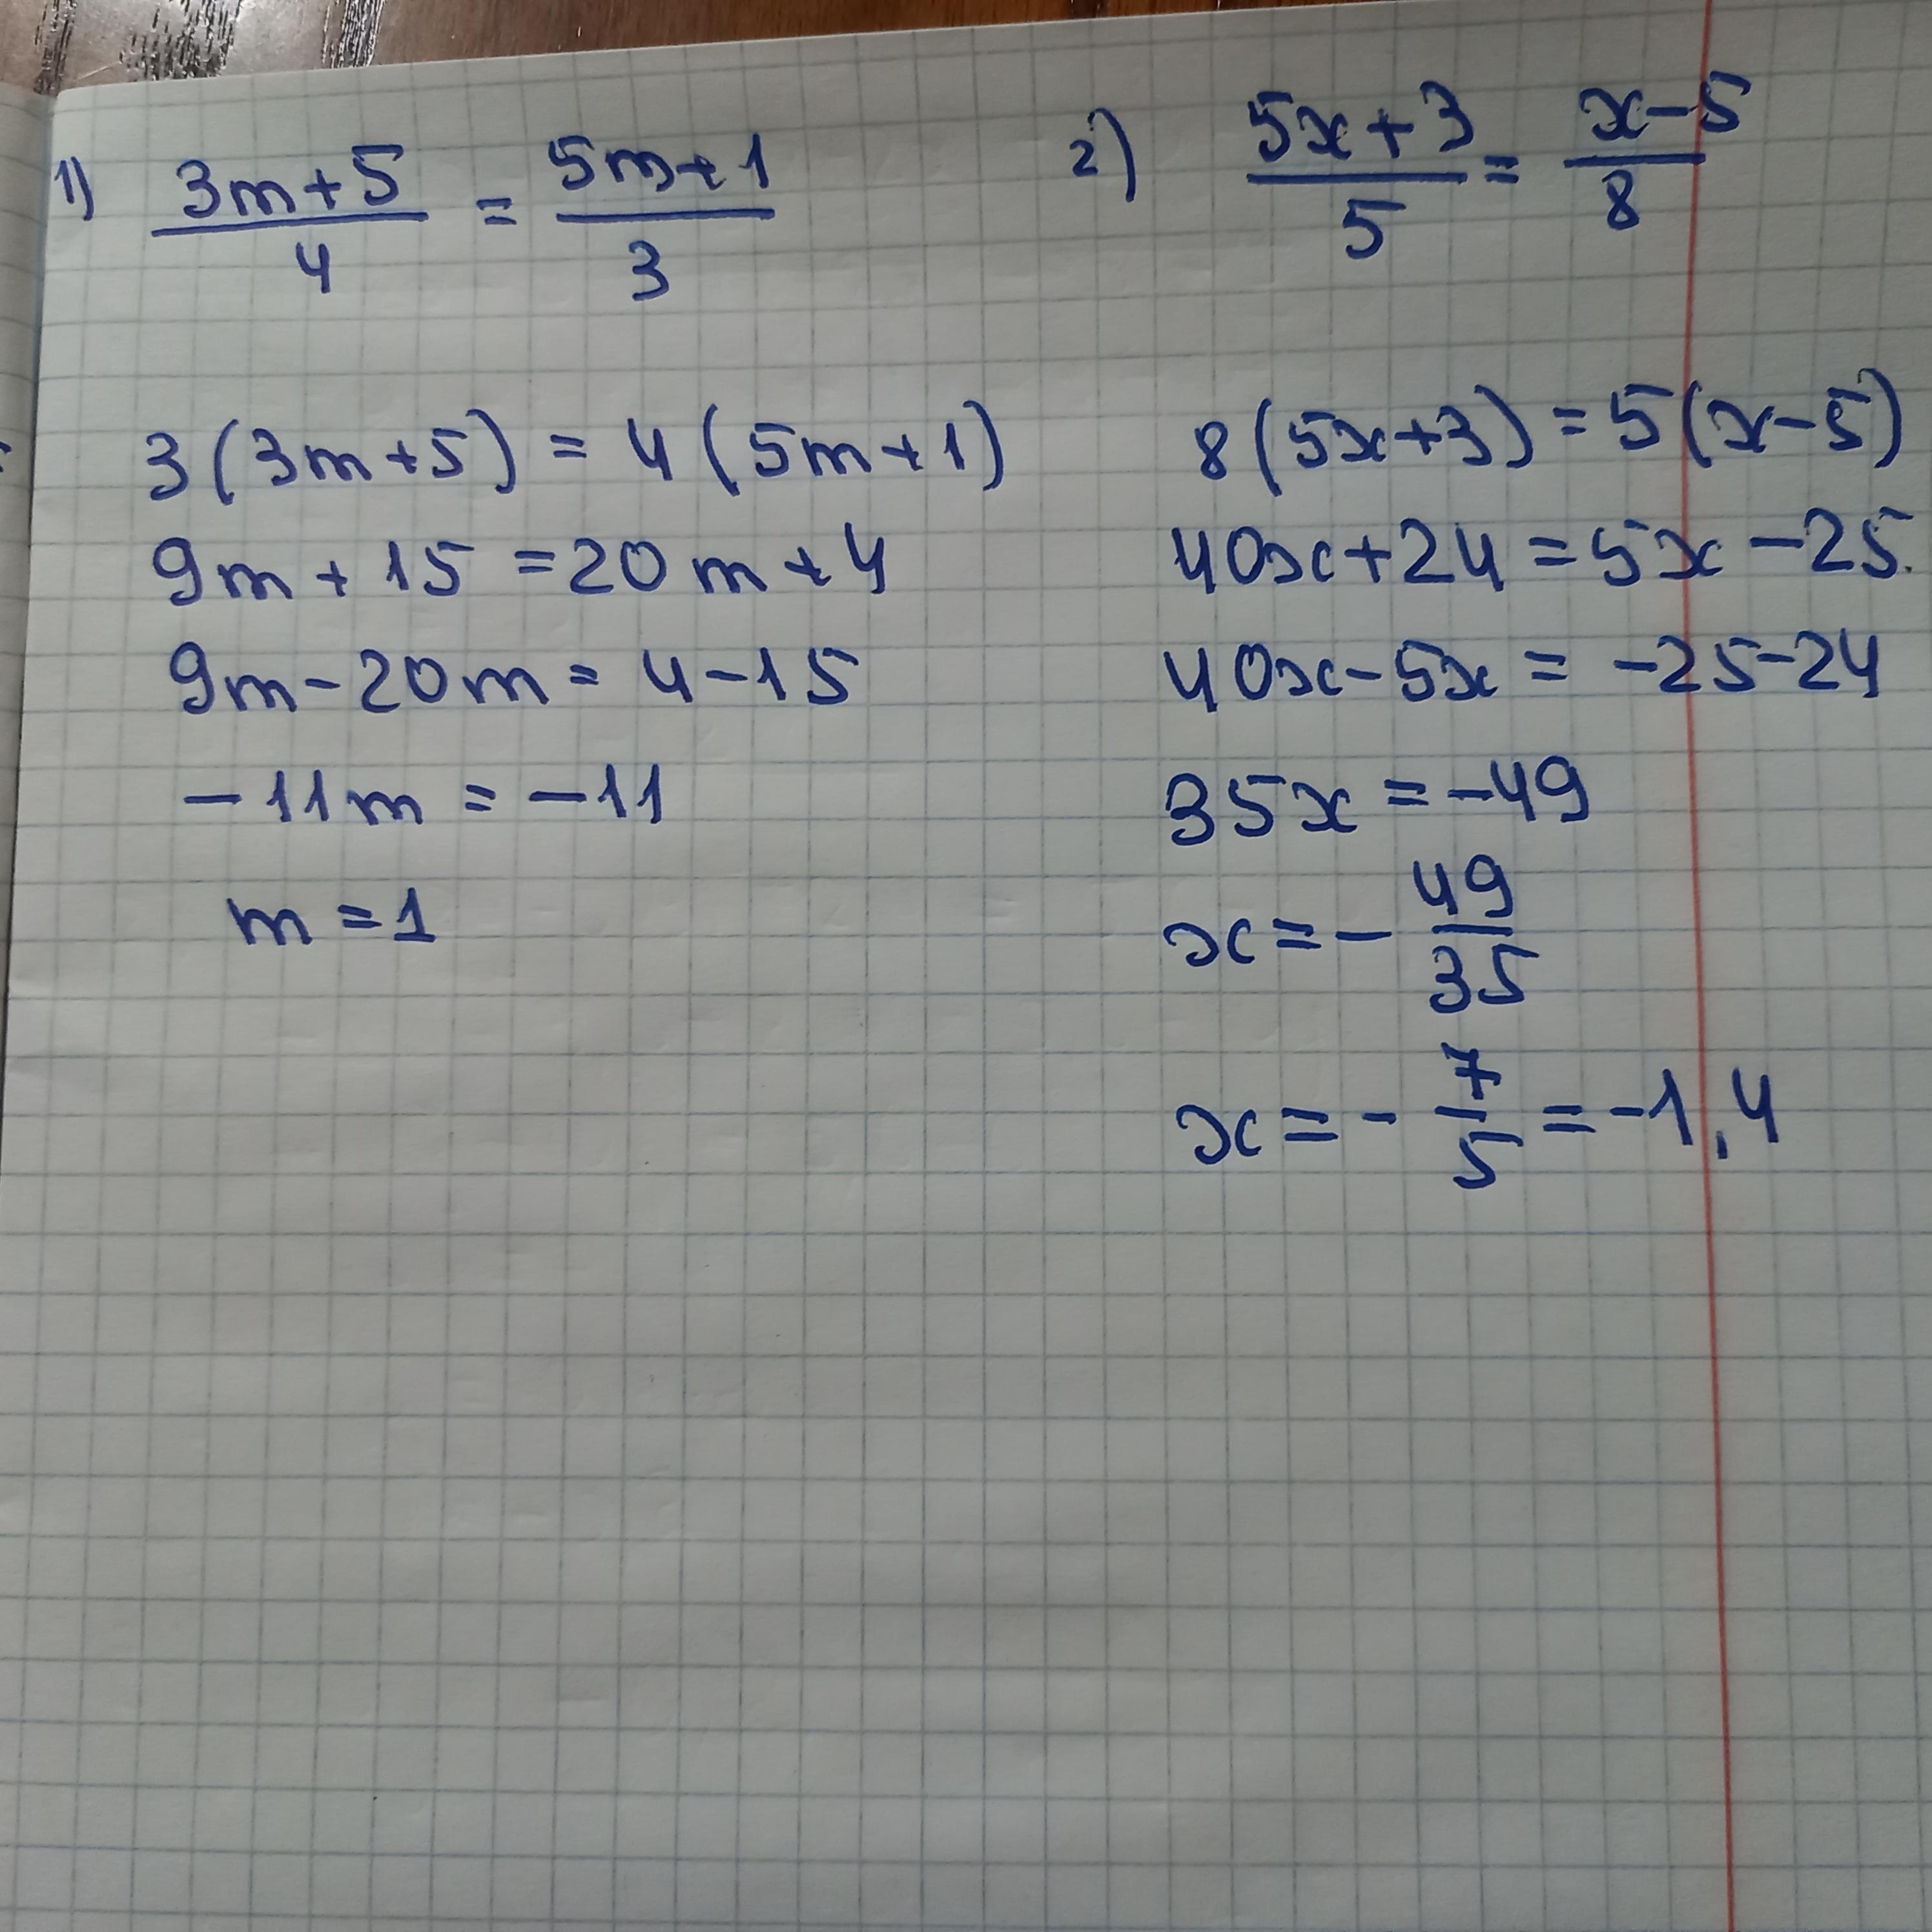 1) (3m+5)/4 = (5m+1)/3
3(3m+5) = 4(5m+1)
9m+15=20m+4
9m-20m=4-15
-11m=-11
m=1
2) (5x+3)/5 = (x-5)/8
8(5x+3)=5(x-5)
40x+24=5x-25.
40x-5x=-25-24
35x=-49
x=-49/35
x=-7/5=-1,4